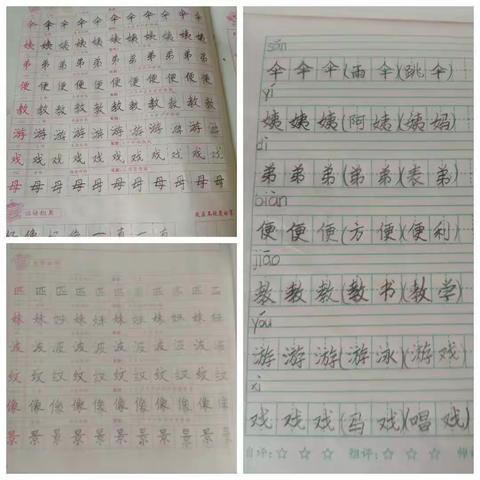 伞 伞 伞 伞 伞 伞 伞 伞 伞 伞
姨 姨 姨 姨 姨 姨 姨 姨 姨 姨
弟 弟 弟 弟 弟 弟 弟 弟 弟 弟
便 便 便 便 便 便 便 便 便 便
教 教 教 教 教 教 教 教 教 教
游 游 游 游 游 游 游 游 游 游
戏 戏 戏 戏 戏 戏 戏 戏 戏 戏
母 母 母 母 母 母 母 母 母 母
匹 匹 匹 匹 匹 匹 匹 匹 匹 匹
妹 妹 妹 妹 妹 妹 妹 妹 妹 妹
波 波 波 波 波 波 波 波 波 波
纹 纹 纹 纹 纹 纹 纹 纹 纹 纹
像 像 像 像 像 像 像 像 像 像
景 景 景 景 景 景 景 景 景 景
sǎn
伞伞伞(雨伞)(跳伞)
yí
姨姨姨(阿姨)(姨妈)
dì
弟弟弟(弟弟)(表弟)
biàn
便便便(方便)(便利)
jiāo
教教教(教书)(教学)
yóu
游游游(游泳)(游戏)
xì
戏戏戏(马戏)(唱戏)
自评:☆ ☆ ☆ 组评:☆ ☆ ☆